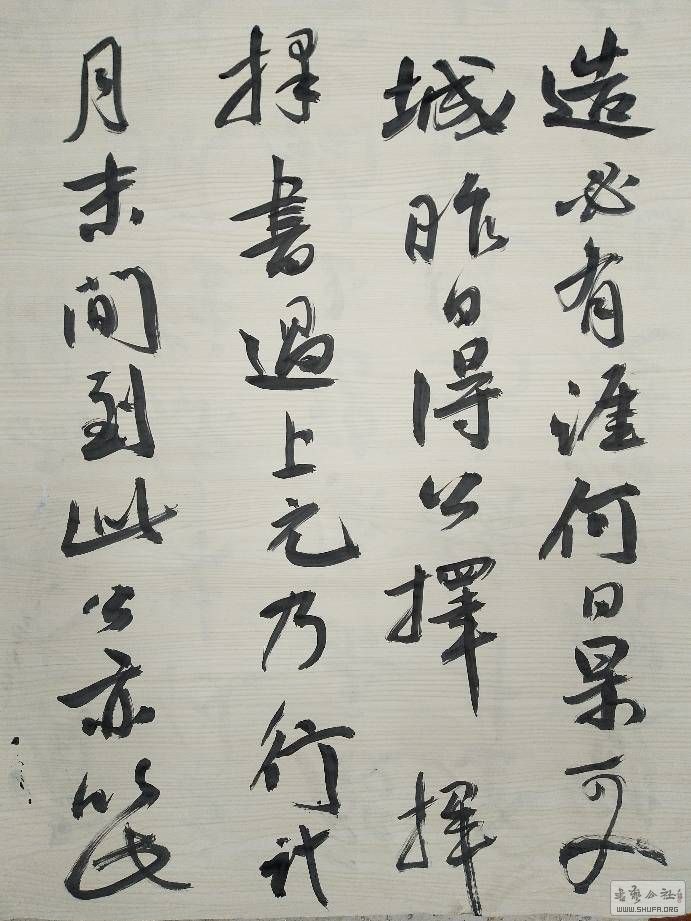 造必有涯何日果可入
城昨日得公擇
择書過上元乃行計
月末間到此公亦以此
书艺公社
WWW.SHUFA.ORG